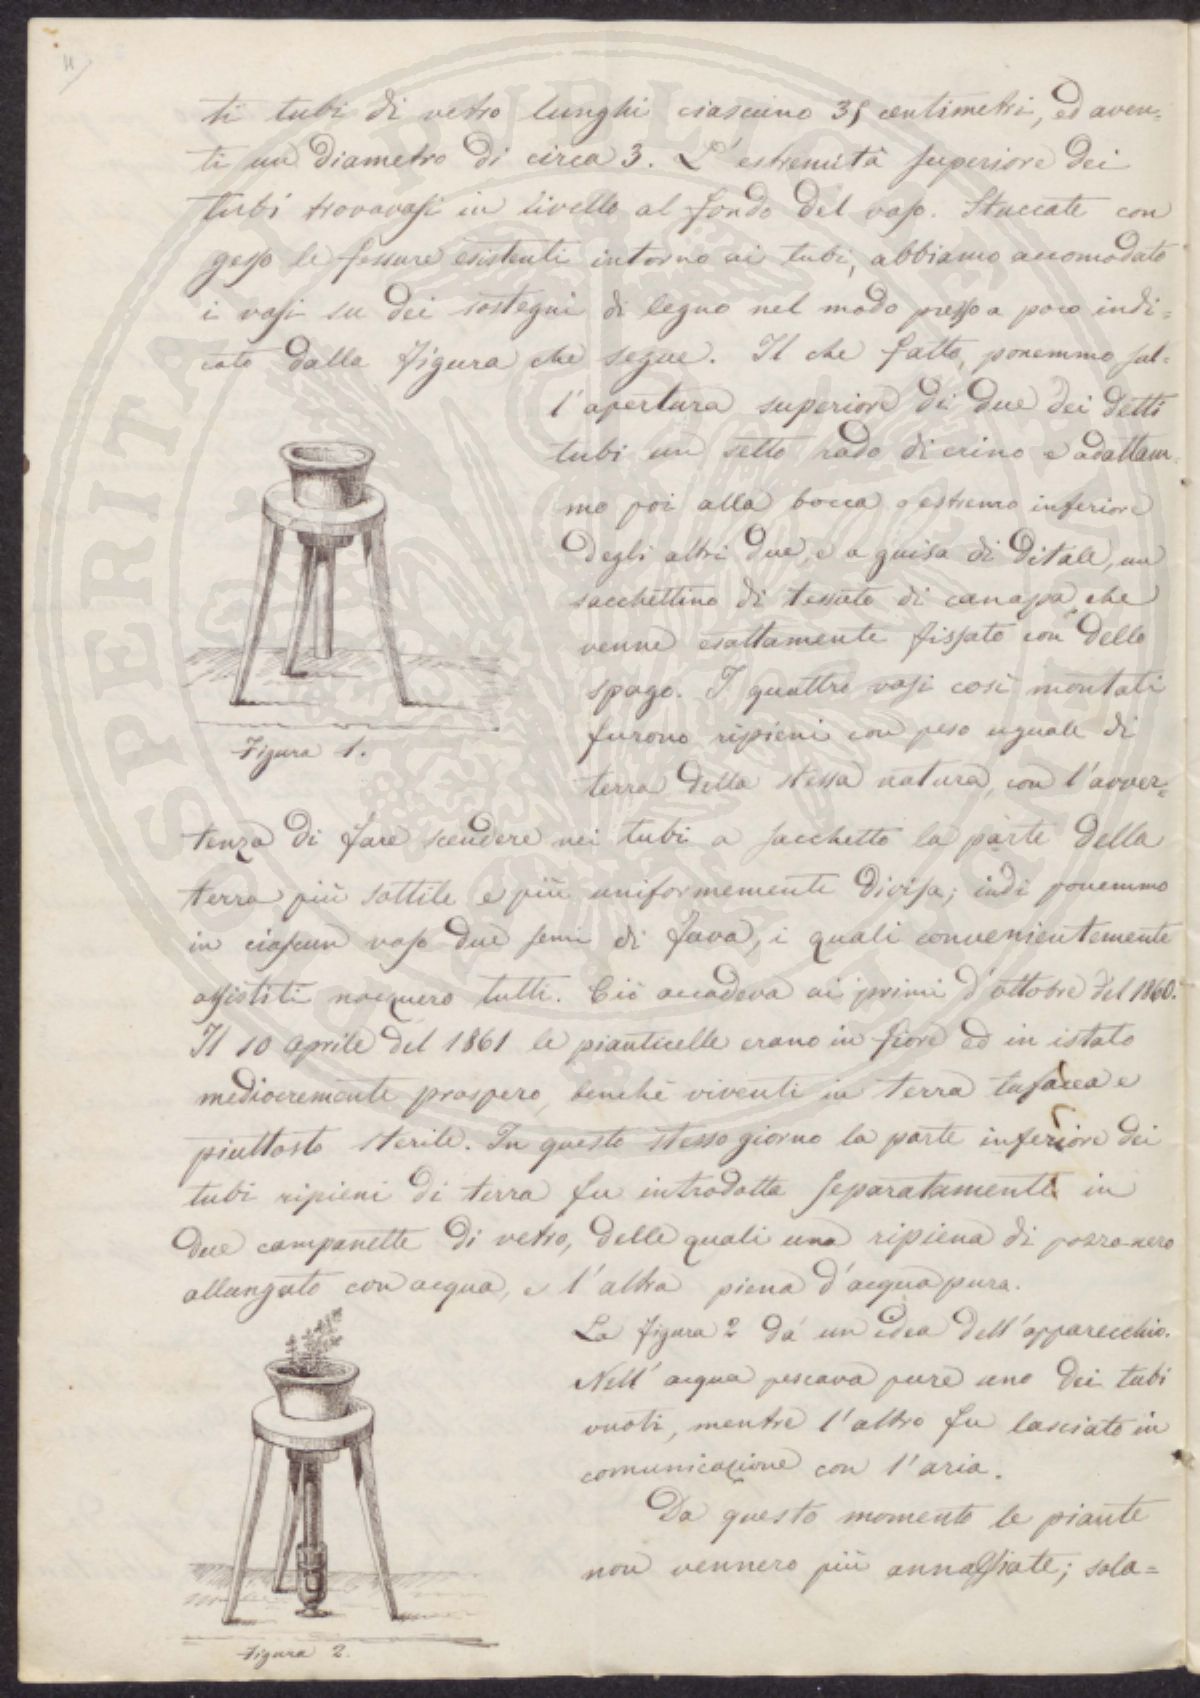 ti tubi di vetro lunghi ciascuno 35 centimetri, ed aven=
ti un diametro di circa 3. L'estremità superiore dei
tubi trovavasi in livello al fondo del vaso. Stuccate con
gesso le fessure esistenti intorno ai tubi, abbiamo accomodato
i vasi su dei sostegni di legno nel modo presso a poco indi=
cato dalla figura che segue. Il che fatto, ponemmo sul=
l'apertura superiore di due dei detti
tubi un setto rado di crino e adattam=
mo poi alla bocca o estremo inferiore
degli altri due, e a guisa di ditale, un
sacchettino di tessuto di canapa, che
venne esattamente fissato con dello
spago. I quattro vasi così montati
furono ripieni con peso uguale di
terra della stessa natura, con l'avver=
Figura 1.
tenza di fare scendere nei tubi a sacchetto la parte della
terra più sottile e più uniformemente divisa; indi ponemmo
in ciascun vaso due semi di fava, i quali convenientemente
assistiti nacquero tutti. Ciò accadeva ai primi d'ottobre del 1860.
Il 10 Aprile del 1861 le pianticelle erano in fiore ed in istato
mediocremente prospero, benchè viventi in terra tufacea e
piuttosto sterile. In questo stesso giorno la parte inferiore dei
tubi ripieni di terra fu introdotta separatamente in
due campanette di vetro, delle quali una ripiena di pozzo nero
allungato con acqua, e l'altra piena d'acqua pura.
La figura 2 dà un idea dell'apparecchio.
Nell'acqua pescava pure uno dei tubi
vuoti, mentre l'altro fu lasciato in
comunicazione con l'aria.
Da questo momento le piante
non vennero più annaffiate; sola=
Figura 2.